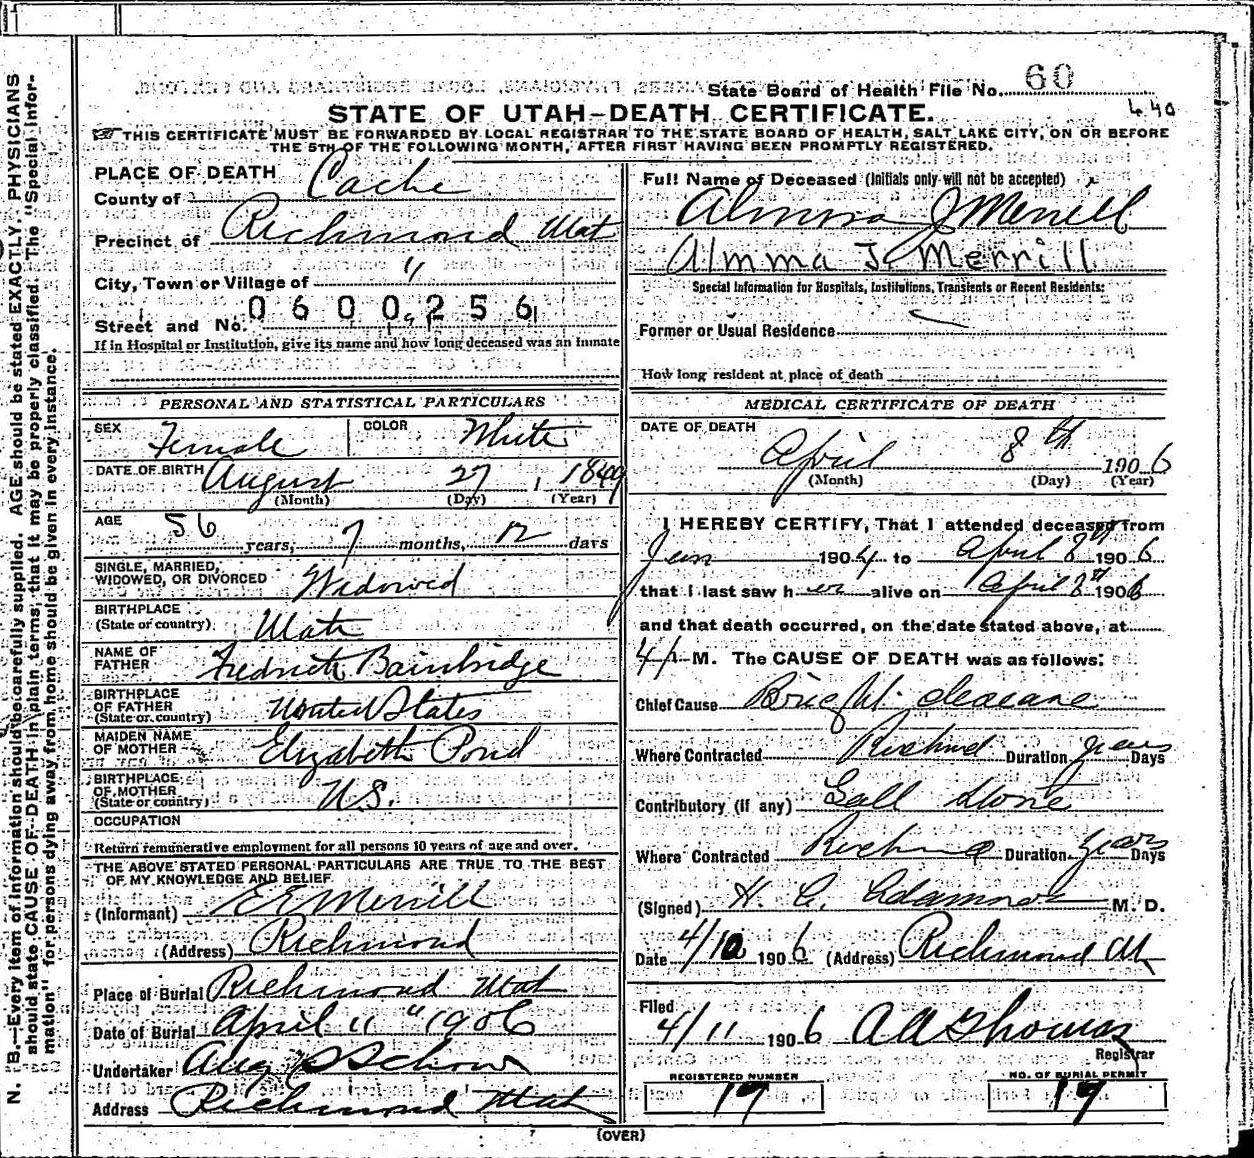 State Board of Health File No. 60
440
STATE OF UTAH-DEATH CERTIFICATE.
THIS CERTIFICATE MUST BE FORWARDED BY LOCAL REGISTRAR TO THE STATE BOARD OF HEALTH, SALT LAKE CITY, ON OR BEFORE
THE 5TH OF THE FOLLOWING MONTH, AFTER FIRST HAVING BEEN PROMPTLY REGISTERED.
PLACE OF DEATH
County of Cache
Precinct of Richmond Utah
City, Town or Village of "
0600256
Street and No.
If in Hospital or Institution, give its name and how long deceased was an inmate
PERSONAL AND STATISTICAL PARTICULARS
SEX Female COLOR White
DATE OF BIRTH August 27, 1849
(Month) (Day) (Year)
AGE 56 years, 7 months, 12 days
SINGLE, MARRIED,
WIDOWED, OR DIVORCED Widowed
BIRTHPLACE
(State or country) Utah
NAME OF
FATHER Fredrick Bainbridge
BIRTHPLACE
OF FATHER
(State or country) United States
MAIDEN NAME
OF MOTHER Elizabeth Pond
BIRTHPLACE
OF MOTHER
(State or country) U.S.
OCCUPATION
Return remunerative employment for all persons 10 years of age and over.
THE ABOVE STATED PERSONAL PARTICULARS ARE TRUE TO THE BEST
OF MY KNOWLEDGE AND BELIEF.
(Informant) E E Merrill
(Address) Richmond
Place of Burial Richmond Utah
Date of Burial April 11 " 1906
Undertaker Aug S Schow
Address Richmond Utah
Full Name of Deceased (Initials only will not be accepted)
Almma J Merrill
Almma J. Merrill
Special Information for Hospitals, Institutions, Transients or Recent Residents:
Former or Usual Residence
How long resident at place of death
MEDICAL CERTIFICATE OF DEATH
DATE OF DEATH
April 8th 1906
(Month) (Day) (Year)
I HEREBY CERTIFY, That I attended deceased from
Jan 1904 to April 8th 1906
that I last saw her alive on April 8th 1906
and that death occurred, on the date stated above, at
4 P M. The CAUSE OF DEATH was as follows:
Chief Cause Bright deseane
Where Contracted Richmd Duration years Days
Contributory (if any) Gall Stone
Where Contracted Richmd Duration years Days
(Signed) H. C. Adamson M. D.
Date 4/10 1906 (Address) Richmond Ut
Filed
4/11 1906 A A Thomas
Registrar
REGISTERED NUMBER NO. OF BURIAL PERMIT
19 19
(OVER)
N. B.—Every item of information should be carefully supplied. AGE should be stated EXACTLY. PHYSICIANS
should state CAUSE OF DEATH in plain terms, that it may be properly classified. The "Special Infor-
mation" for persons dying away from home should be given in every instance.